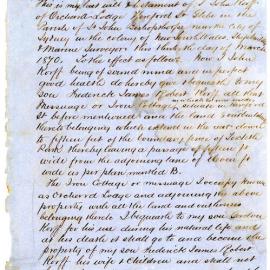 This is my last will & testament of I John Korff
of Orchard Lodge Hereford St Glebe in the
Parish of St Johns Bishopthorpe near the City of
Sydney in the Colony of New South Wales Shipbuilder
& Marine Surveyor This the day of March
1870. To the effect as follows. Now I John
Korff being of sound mind and in perfect
good health do hereby give & bequeath to my
son Frederick James Robert Korff all that
Messuage or Iron Cottage situate in Hereford
St before mentioned and the land & outbuildings
thereto belonging which extend in the west down
to fifteen feet of the
thereby leaving a passage of fifteen feet
wide from the adjoining lane of Eleven ft
wide as per plan marked B.
The Iron Cottage or messuage I occupy known
as Orchard Lodge and adjoining the above
property with all the land and outhouses
belonging thereto I bequeath to my son Gordon
Korff for his use during his natural life and
at his death it shall go to and become the
property of my son Frederick James Robert
Korff his wife & Children and shall not